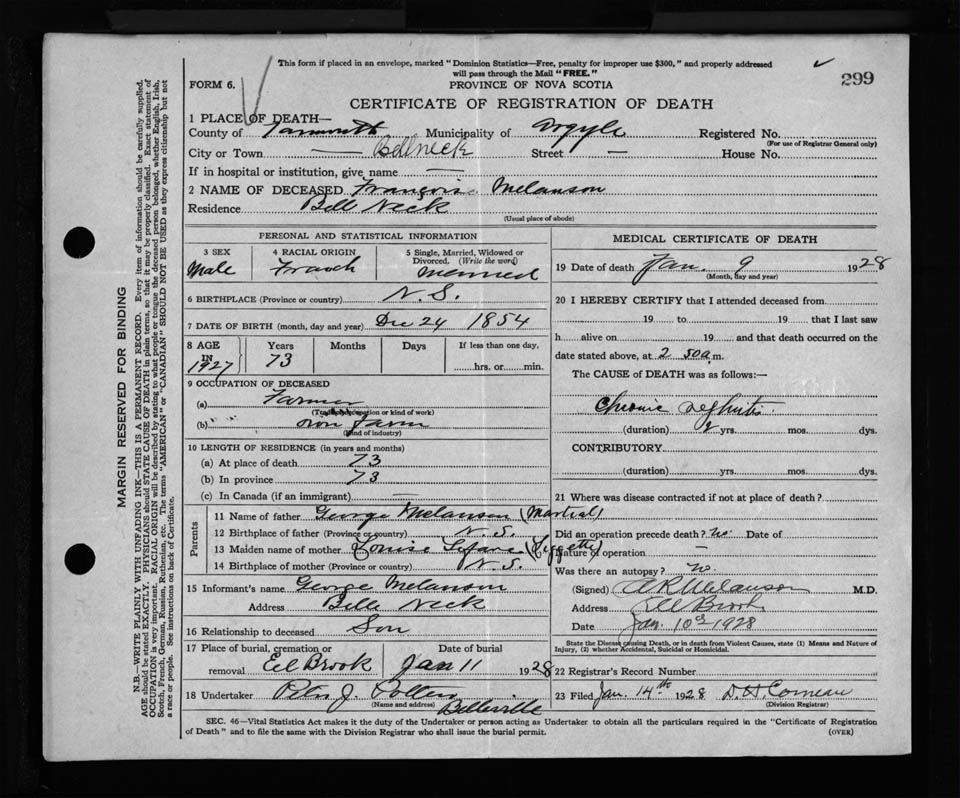 This form if placed in an envelope, marked "Dominion Statistics—Free, penalty for improper use $300," and properly addressed
will pass through the Mail "FREE."
299
FORM 6.
PROVINCE OF NOVA SCOTIA
CERTIFICATE OF REGISTRATION OF DEATH
1 PLACE OF DEATH—
County of Yarmouth Municipality of Argyle Registered No.
(For use of Registrar General only)
City or Town Bellneck Street — House No.
If in hospital or institution, give name —
2 NAME OF DECEASED François Melanson
Residence Bell Neck
(Usual place of abode)
PERSONAL AND STATISTICAL INFORMATION
3 SEX 4 RACIAL ORIGIN 5 Single, Married, Widowed or
Divorced. (Write the word)
Male French Married
6 BIRTHPLACE (Province or country) N. S.
7 DATE OF BIRTH (month, day and year) Dec 24 1854
8 AGE Years Months Days If less than one day,
IN 1927 73 hrs. or min.
9 OCCUPATION OF DECEASED
(a) Farmer
(Trade, profession or kind of work)
(b) own farm
(Kind of industry)
10 LENGTH OF RESIDENCE (in years and months)
(a) At place of death 73
(b) In province 73
(c) In Canada (if an immigrant) —
Parents
11 Name of father George Melanson (Martial)
12 Birthplace of father (Province or country) N. S.
13 Maiden name of mother Louise
14 Birthplace of mother (Province or country) N. S.
15 Informant's name George Melanson
Address Belle Neck
16 Relationship to deceased Son
17 Place of burial, cremation or removal Eel Brook Date of burial Jan 11 1928
18 Undertaker Peter J.
(Name and address) Belleville
MEDICAL CERTIFICATE OF DEATH
19 Date of death Jan. 9 1928
(Month, day and year)
20 I HEREBY CERTIFY that I attended deceased from
19 to 19 that I last saw
h alive on 19 and that death occurred on the
date stated above, at 2 50 a.m.
The CAUSE OF DEATH was as follows:—
Chronic nephritis
(duration) 2 yrs. mos. dys.
CONTRIBUTORY.
(duration) yrs. mos. dys.
21 Where was disease contracted if not at place of death?
Did an operation precede death? no Date of
Nature of operation —
Was there an autopsy? no
(Signed) A R Melanson M.D.
Address Eel Brook
Date Jan. 10th 1928
State the Disease causing Death, or in death from Violent Causes, state (1) Means and Nature of
Injury, (2) whether Accidental, Suicidal or Homicidal.
22 Registrar's Record Number
23 Filed Jan. 14th 1928 D. H. Comeau
(Division Registrar)
SEC. 46—Vital Statistics Act makes it the duty of the Undertaker or person acting as Undertaker to obtain all the particulars required in the "Certificate of Registration
of Death" and to file the same with the Division Registrar who shall issue the burial permit.
(OVER)
MARGIN RESERVED FOR BINDING
N.B.—WRITE PLAINLY WITH UNFADING INK—THIS IS A PERMANENT RECORD. Every item of information should be carefully supplied.
AGE should be stated EXACTLY. PHYSICIANS should STATE CAUSE OF DEATH in plain terms, so that it may be properly classified. Exact statement of
OCCUPATION is very important. RACIAL ORIGIN will be described by stating to what people or tongue the deceased person belonged, whether English, Irish,
Scotch, French, German, Russian, Ruthenian, etc. The terms "AMERICAN" or "CANADIAN" SHOULD NOT BE USED as they express citizenship but not
a race or people. See instructions on back of Certificate.